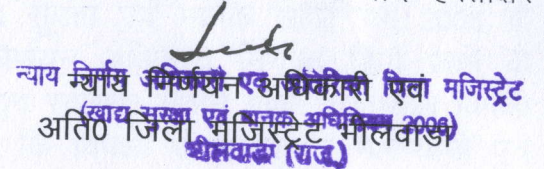 न्याय निर्णयन अधिकारी एवं
अति0 जिला मजिस्ट्रेट भीलवाडा
न्याय निर्णयन अधिकारी एवं अतिरिक्त जिला मजिस्ट्रेट
(खाद्य सुरक्षा एवं मानक अधिनियम 2006)
भीलवाडा (राज.)